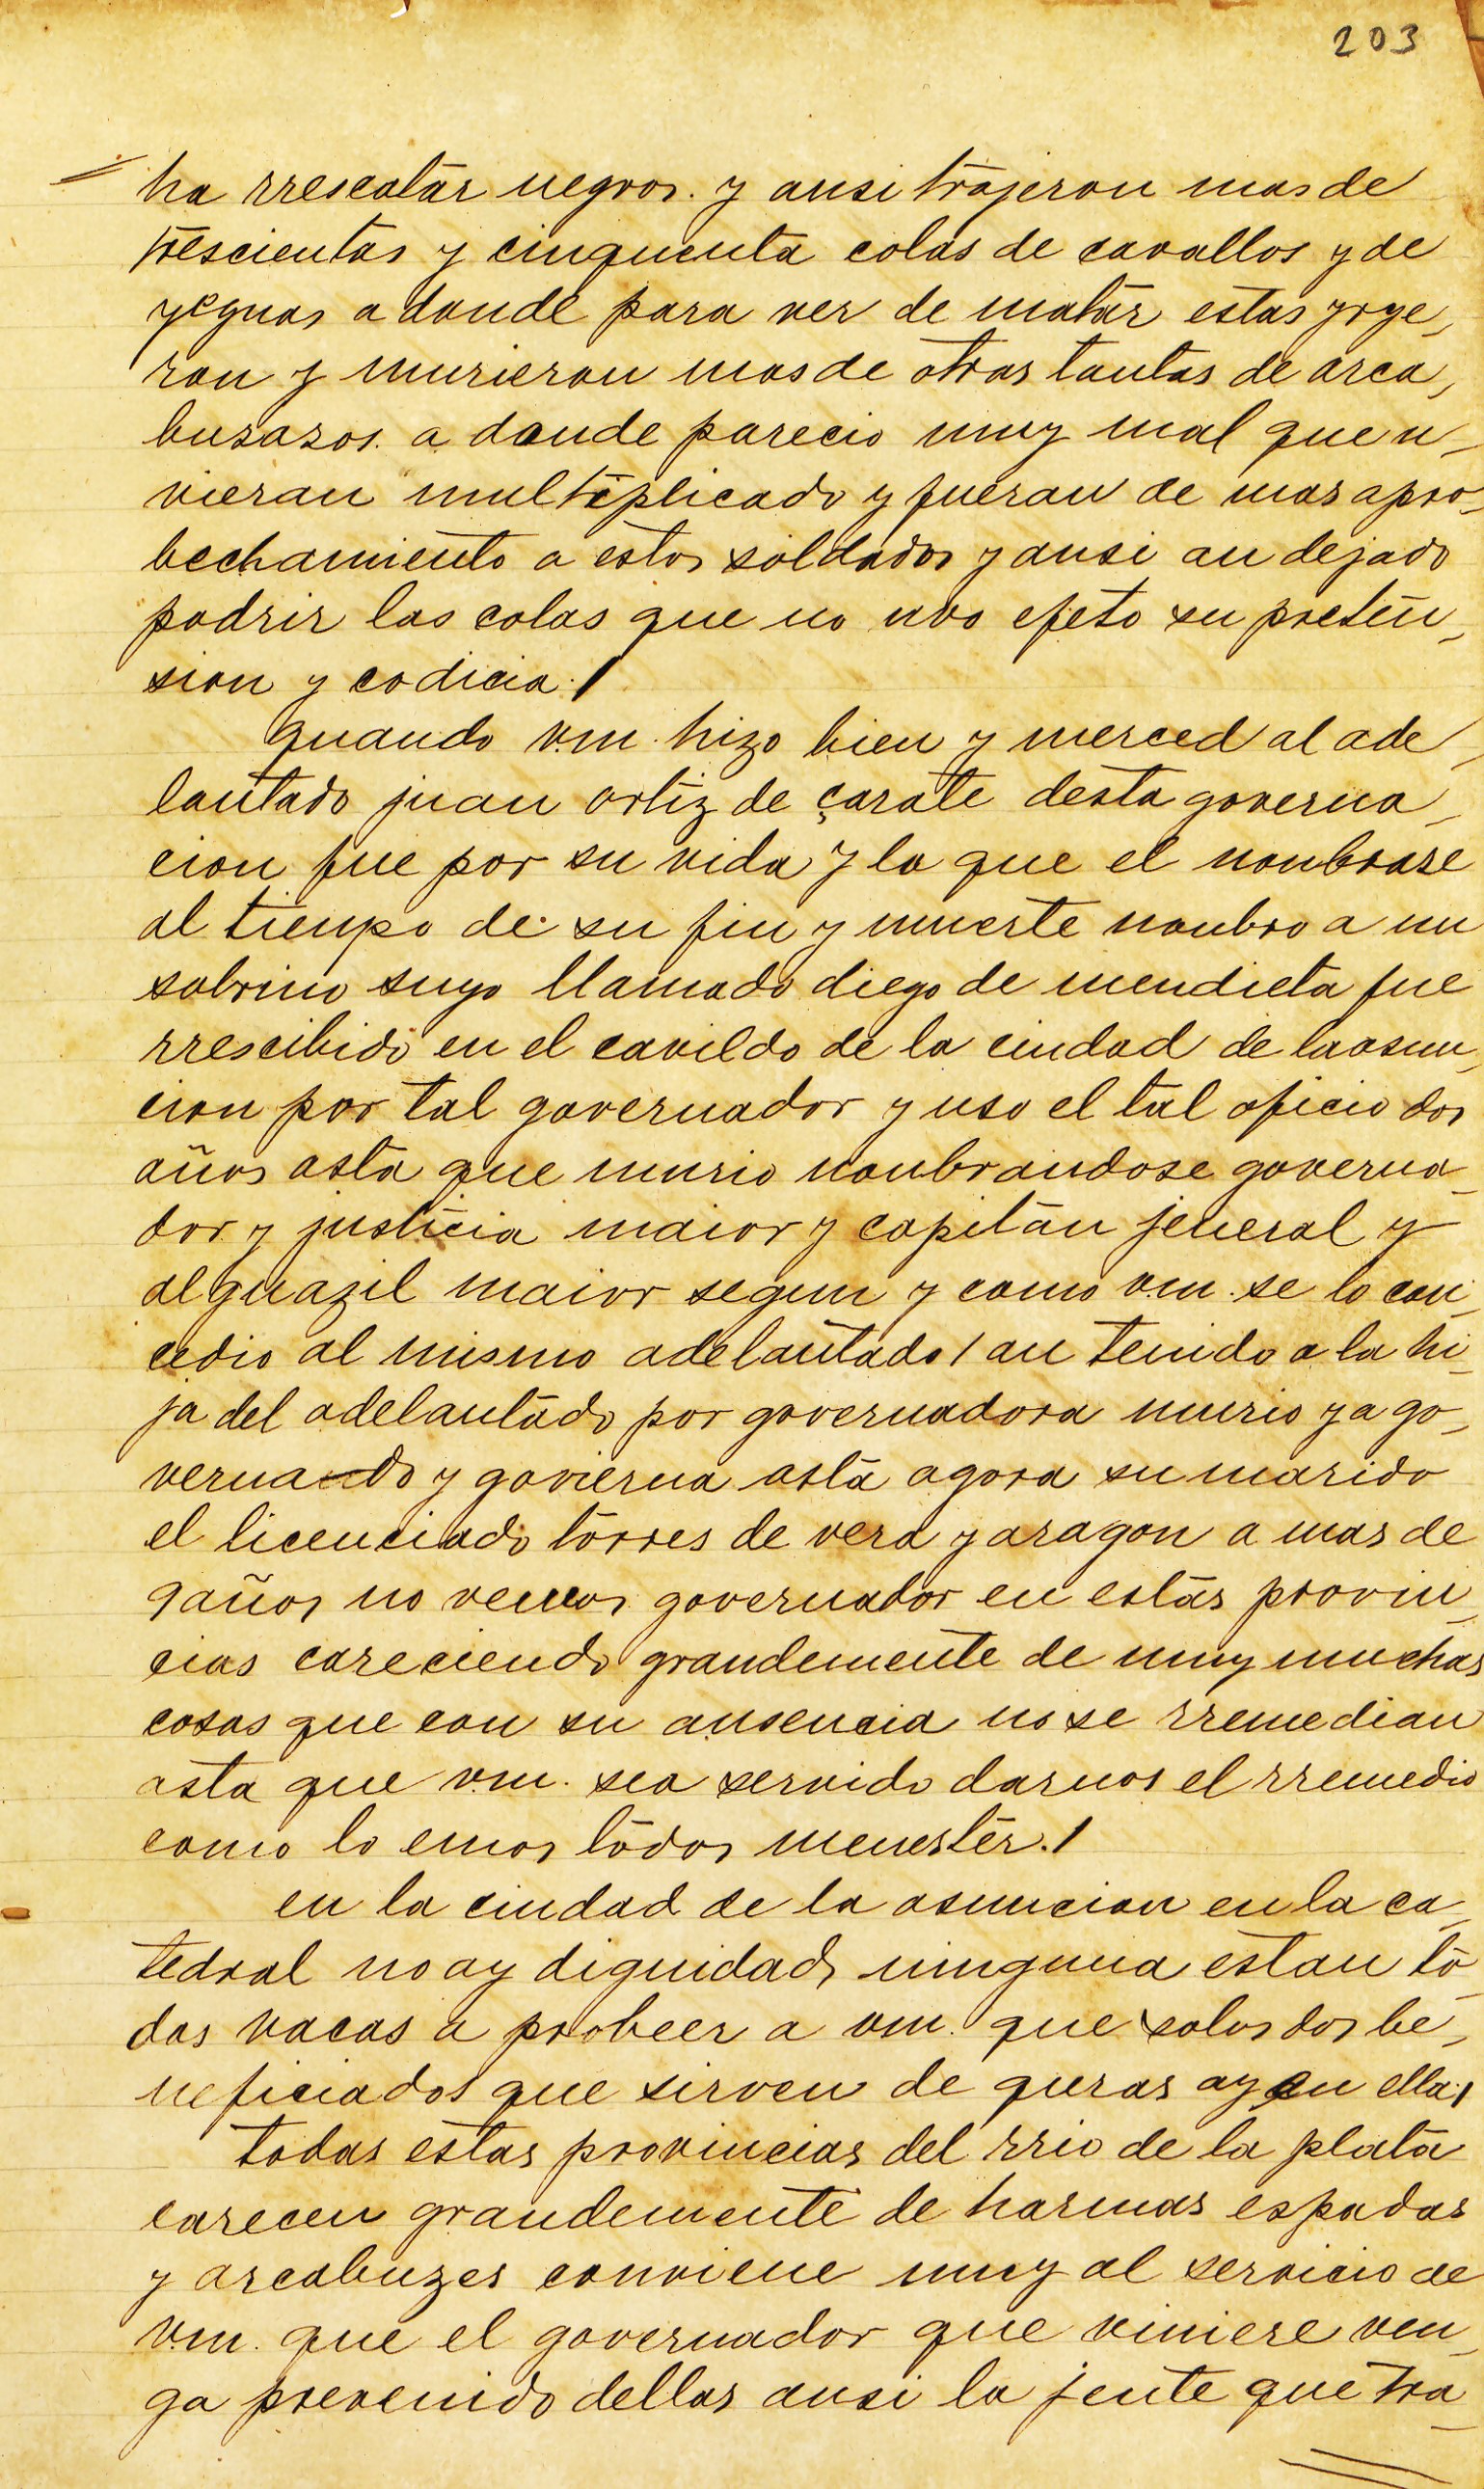 203
ha rrescatar negros. y ansi trajeron mas de
trescientas y cinquenta colas de cavallos y de
yeguas a donde para ver de matar estas yrye_
ron y murieron mas de otras tantas de arca_
busasos. a donde parecio muy mal que u_
vieran multiplicado y fueran de mas apro_
bechamiento a estos soldados y ansi an dejado
podrir las colas que no uvo efeto su preten_
sion y codicia./
quando v.m. hizo bien y merced al ade_
lantado juan ortiz de çarate desta governa_
cion fue por su vida y la que el nonbrase
al tienpo de su fin y muerte nonbro a un
sobrino suyo llamado diego de mendieta fue
rrescibido en el cavildo de la ciudad de la asun_
cion por tal governador y uso el tal oficio dos
años asta que murio nonbrandose governa_
dor y justicia maior y capitan jeneral y
alguazil maior segun y como v.m. se lo con_
cedio al mismo adelantado / an tenido a la hi_
ja del adelantado por governadora murio ya go_
vernando y govierna asta agora su marido
el licenciado torres de vera y aragon a mas de
9 años no vemos governador en estas provin_
cias careciendo grandemente de muy muchas
cosas que con su ausencia no se rremedian
asta que v.m. sea servido darnos el rremedio
como lo emos todos menester./
en la ciudad de la asuncion en la ca_
tedral no ay dignidad ninguna estan to_
das vacas a probeer a v.m. que solos dos be_
neficiados que sirven de quras ay en ella/
todas estas provincias del rrio de la plata
carecen grandemente de harmas espadas
y arcabuzes conviene muy al servicio de
v.m. que el governador que viniere ven_
ga prevenido dellas ansi la jente que tra_